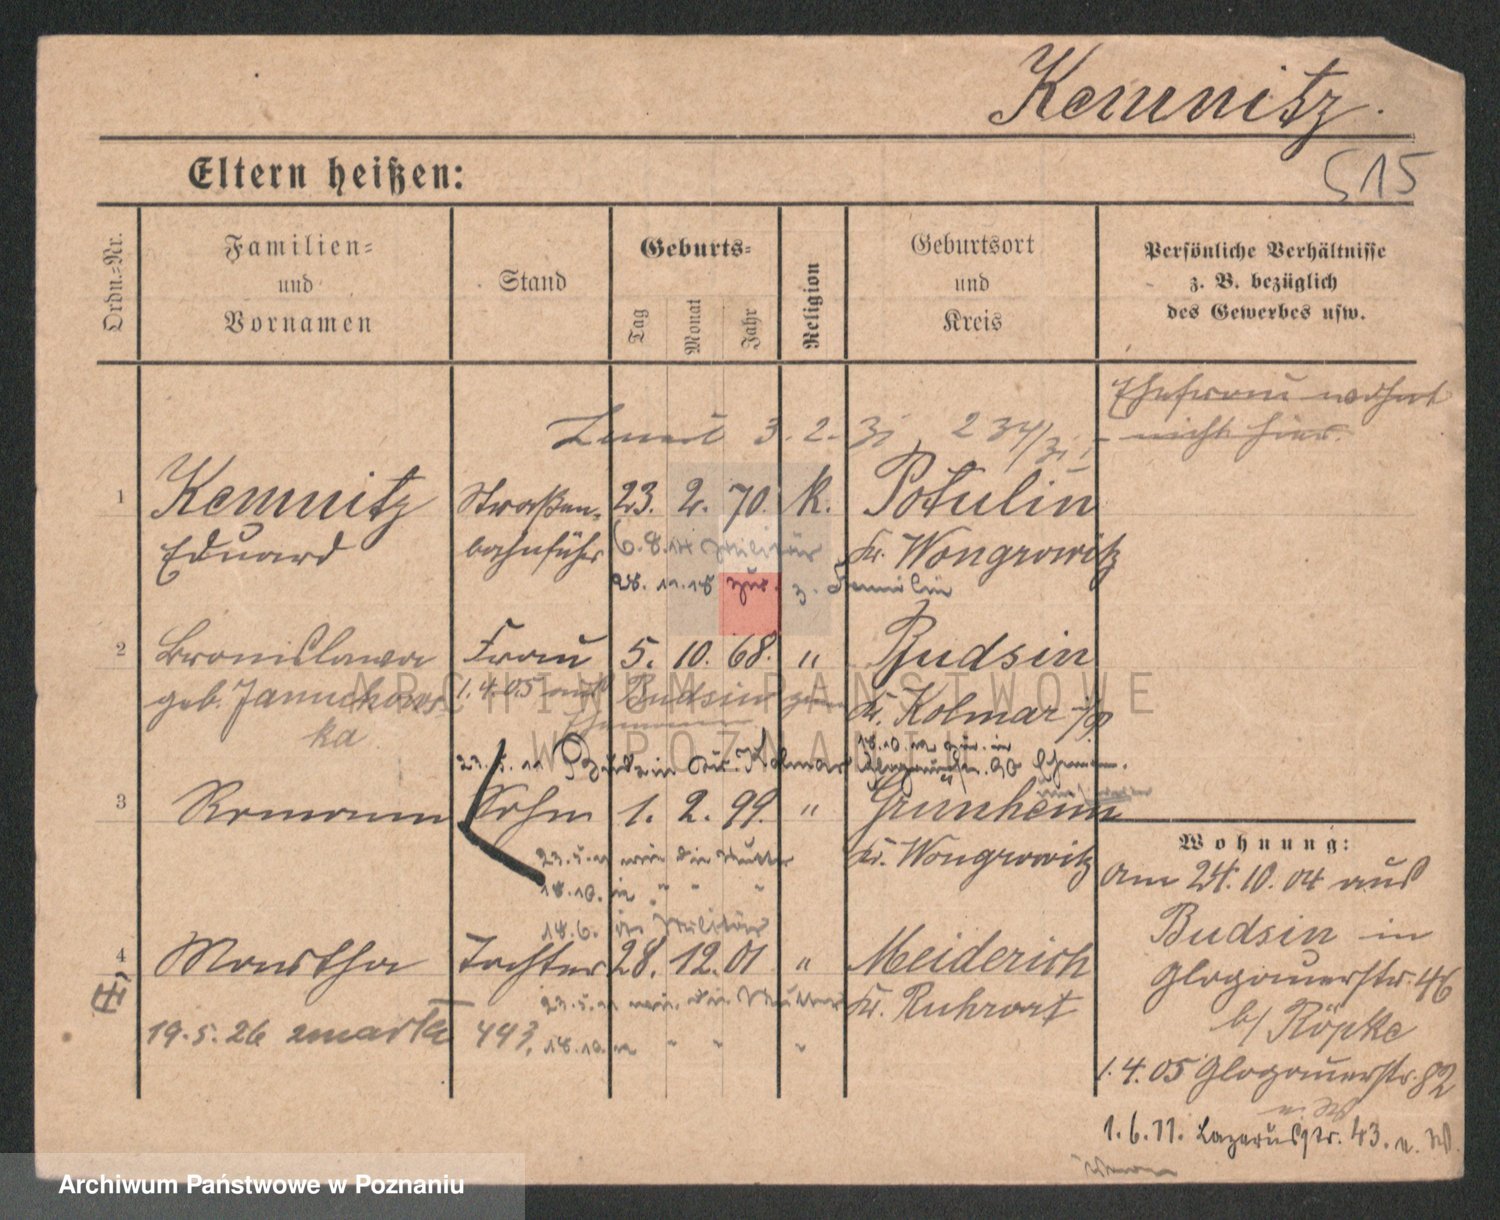 Kemnitz.
515
Eltern heißen:
Ordn.-Nr.
Familien-
und
Vornamen
Stand
Geburts-
Tag
Monat
Jahr
Religion
Geburtsort
und
Kreis
Persönliche Verhältnisse
z. B. bezüglich
des Gewerbes usw.
Ehefrau wohnt
nicht hier.
3. 2. 31
1 Kemnitz Straßen- 23. 2. 70. k. Potulin
Eduard bahnführ 6.8.14 Militär Kr. Wongrowitz
28.11.18 zur. z. Familie
2 Bronislawa Frau 5. 10. 68. " Budsin
geb. Januchows- 1.4.05 aus Budsin Kr. Kolmar i/P
ka Ehemann
18.10. in
23.5.11 Budsin Kr. Kolmar
3 Romann Sohn 1. 2. 99. " Grünheim
23.5.11 die Mutter Kr. Wongrowitz
18.10. " " "
18.6. Militär
4 Martha Tochter 28. 12. 01 " Meiderich
23.5.11 die Mutter Kr. Ruhrort
19.5.26 zmarła 493, 18.10. " " "
Wohnung:
Am 24.10.04 aus
Budsin in
Glogauerstr. 46
b/ Röpke
1.4.05 Glogauerstr. 82
1.6.11. Lazarusstr. 43.
ARCHIWUM PAŃSTWOWE
W POZNANIU
Archiwum Państwowe w Poznaniu